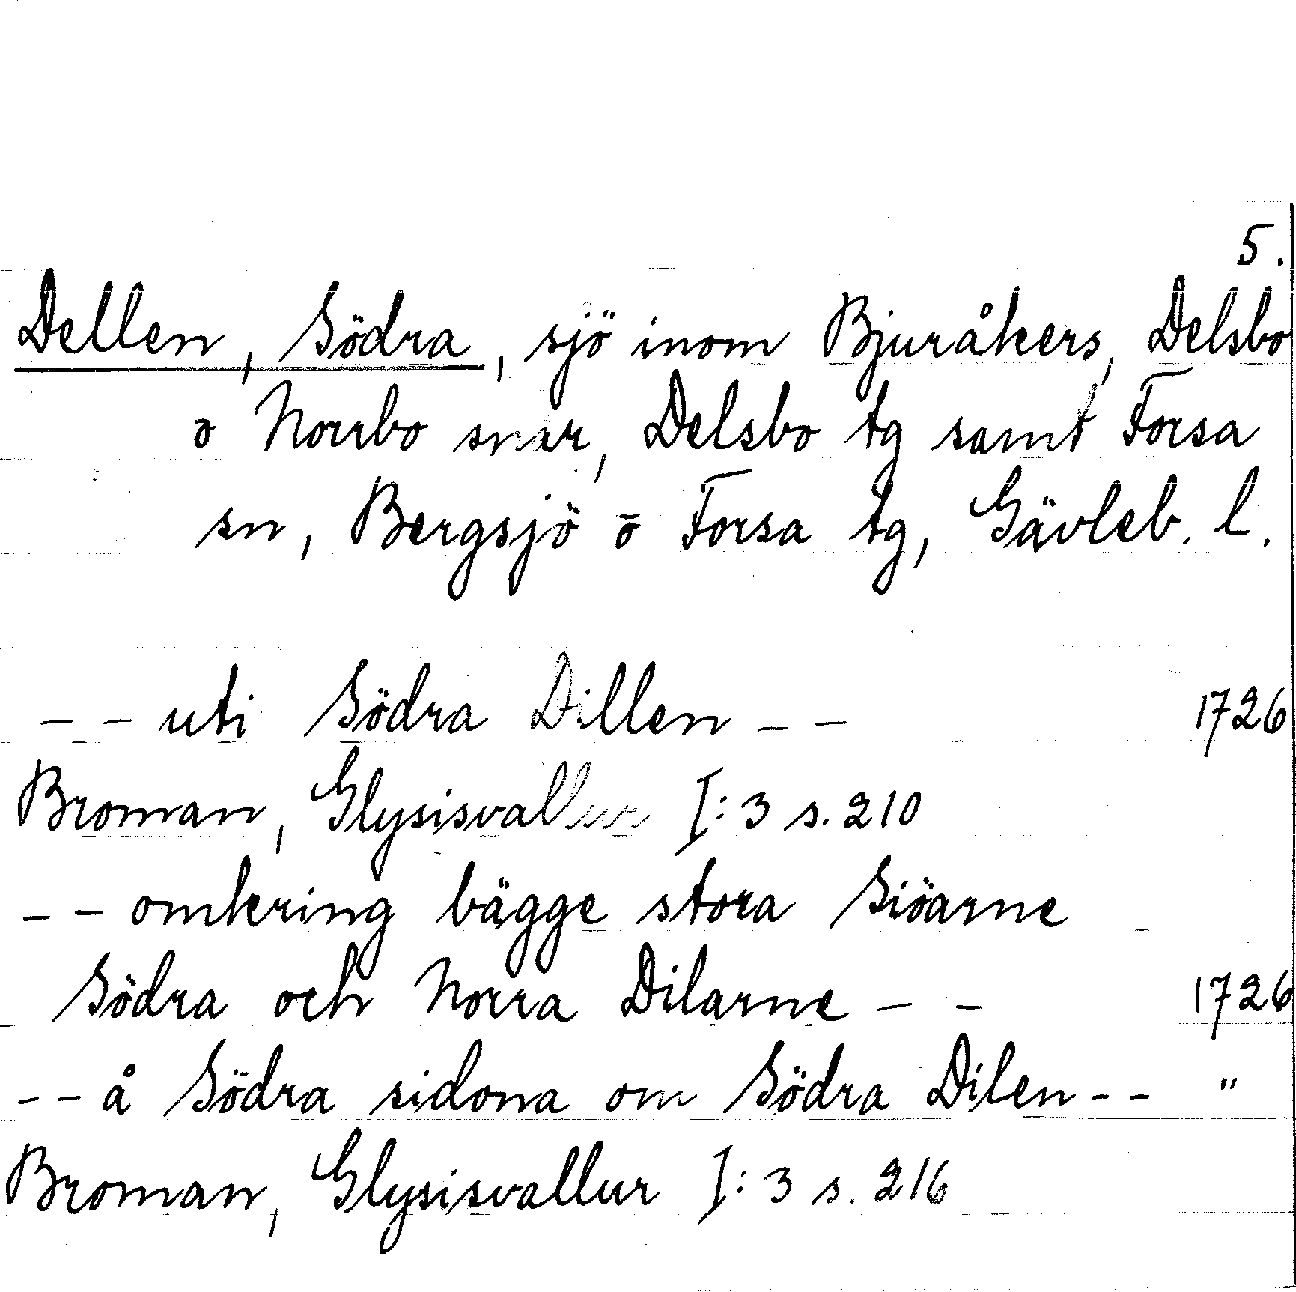 5.
Dellen, Södra, sjö inom Bjuråkers, Delsbo
o Norrbo snar, Delsbo tg samt Forsa
sn, Bergsjö o Forsa tg, Gävleb. l.
-- uti Södra Dillen -- 1726
Broman, Glysisvallur I:3 s. 210
-- omkring bägge stora Siöarne
Södra och Norra Dilarne -- 1726
-- å Södra sidona om Södra Dilen -- "
Broman, Glysisvallur I:3 s. 216